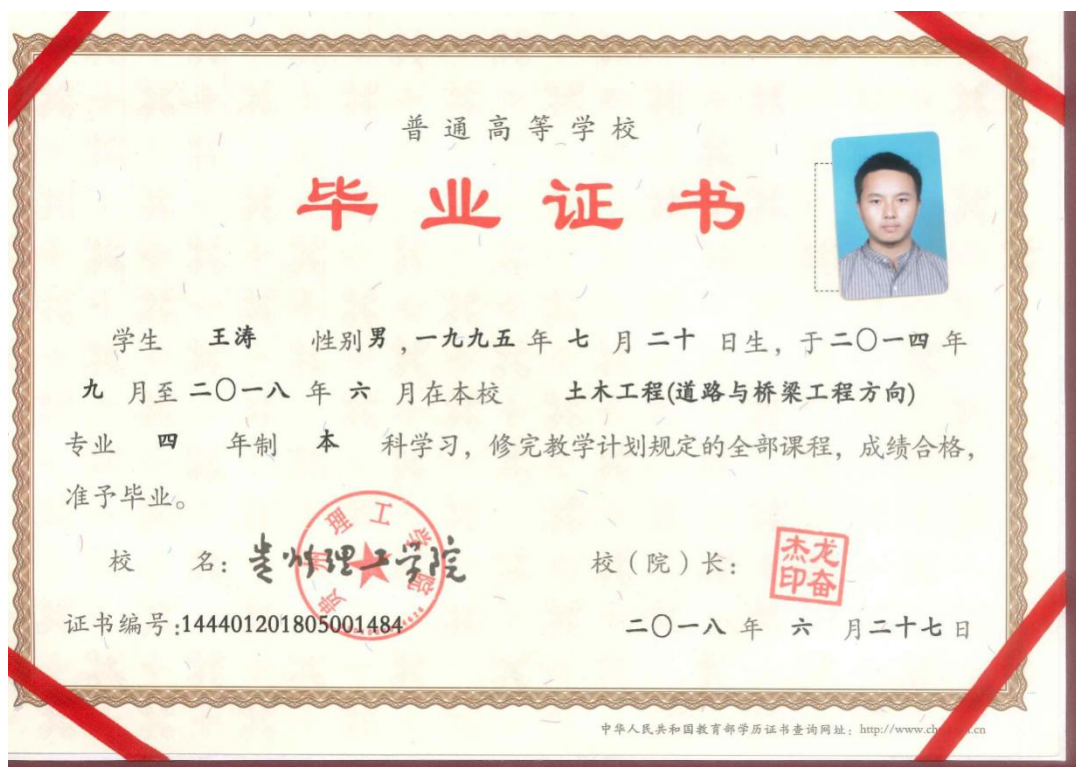 普通高等学校
毕业证书
学生 王涛 性别 男 ,一九九五 年 七 月 二十 日生, 于 二〇一四 年
九 月至 二〇一八 年 六 月在本校 土木工程(道路与桥梁工程方向)
专业 四 年制 本 科学习, 修完教学计划规定的全部课程, 成绩合格,
准予毕业。
校 名: 贵州理工学院
贵州理工学院
校(院)长:
龙奋杰印
证书编号:144401201805001484
二〇一八 年 六 月 二十七 日
中华人民共和国教育部学历证书查询网址: http://www.ch